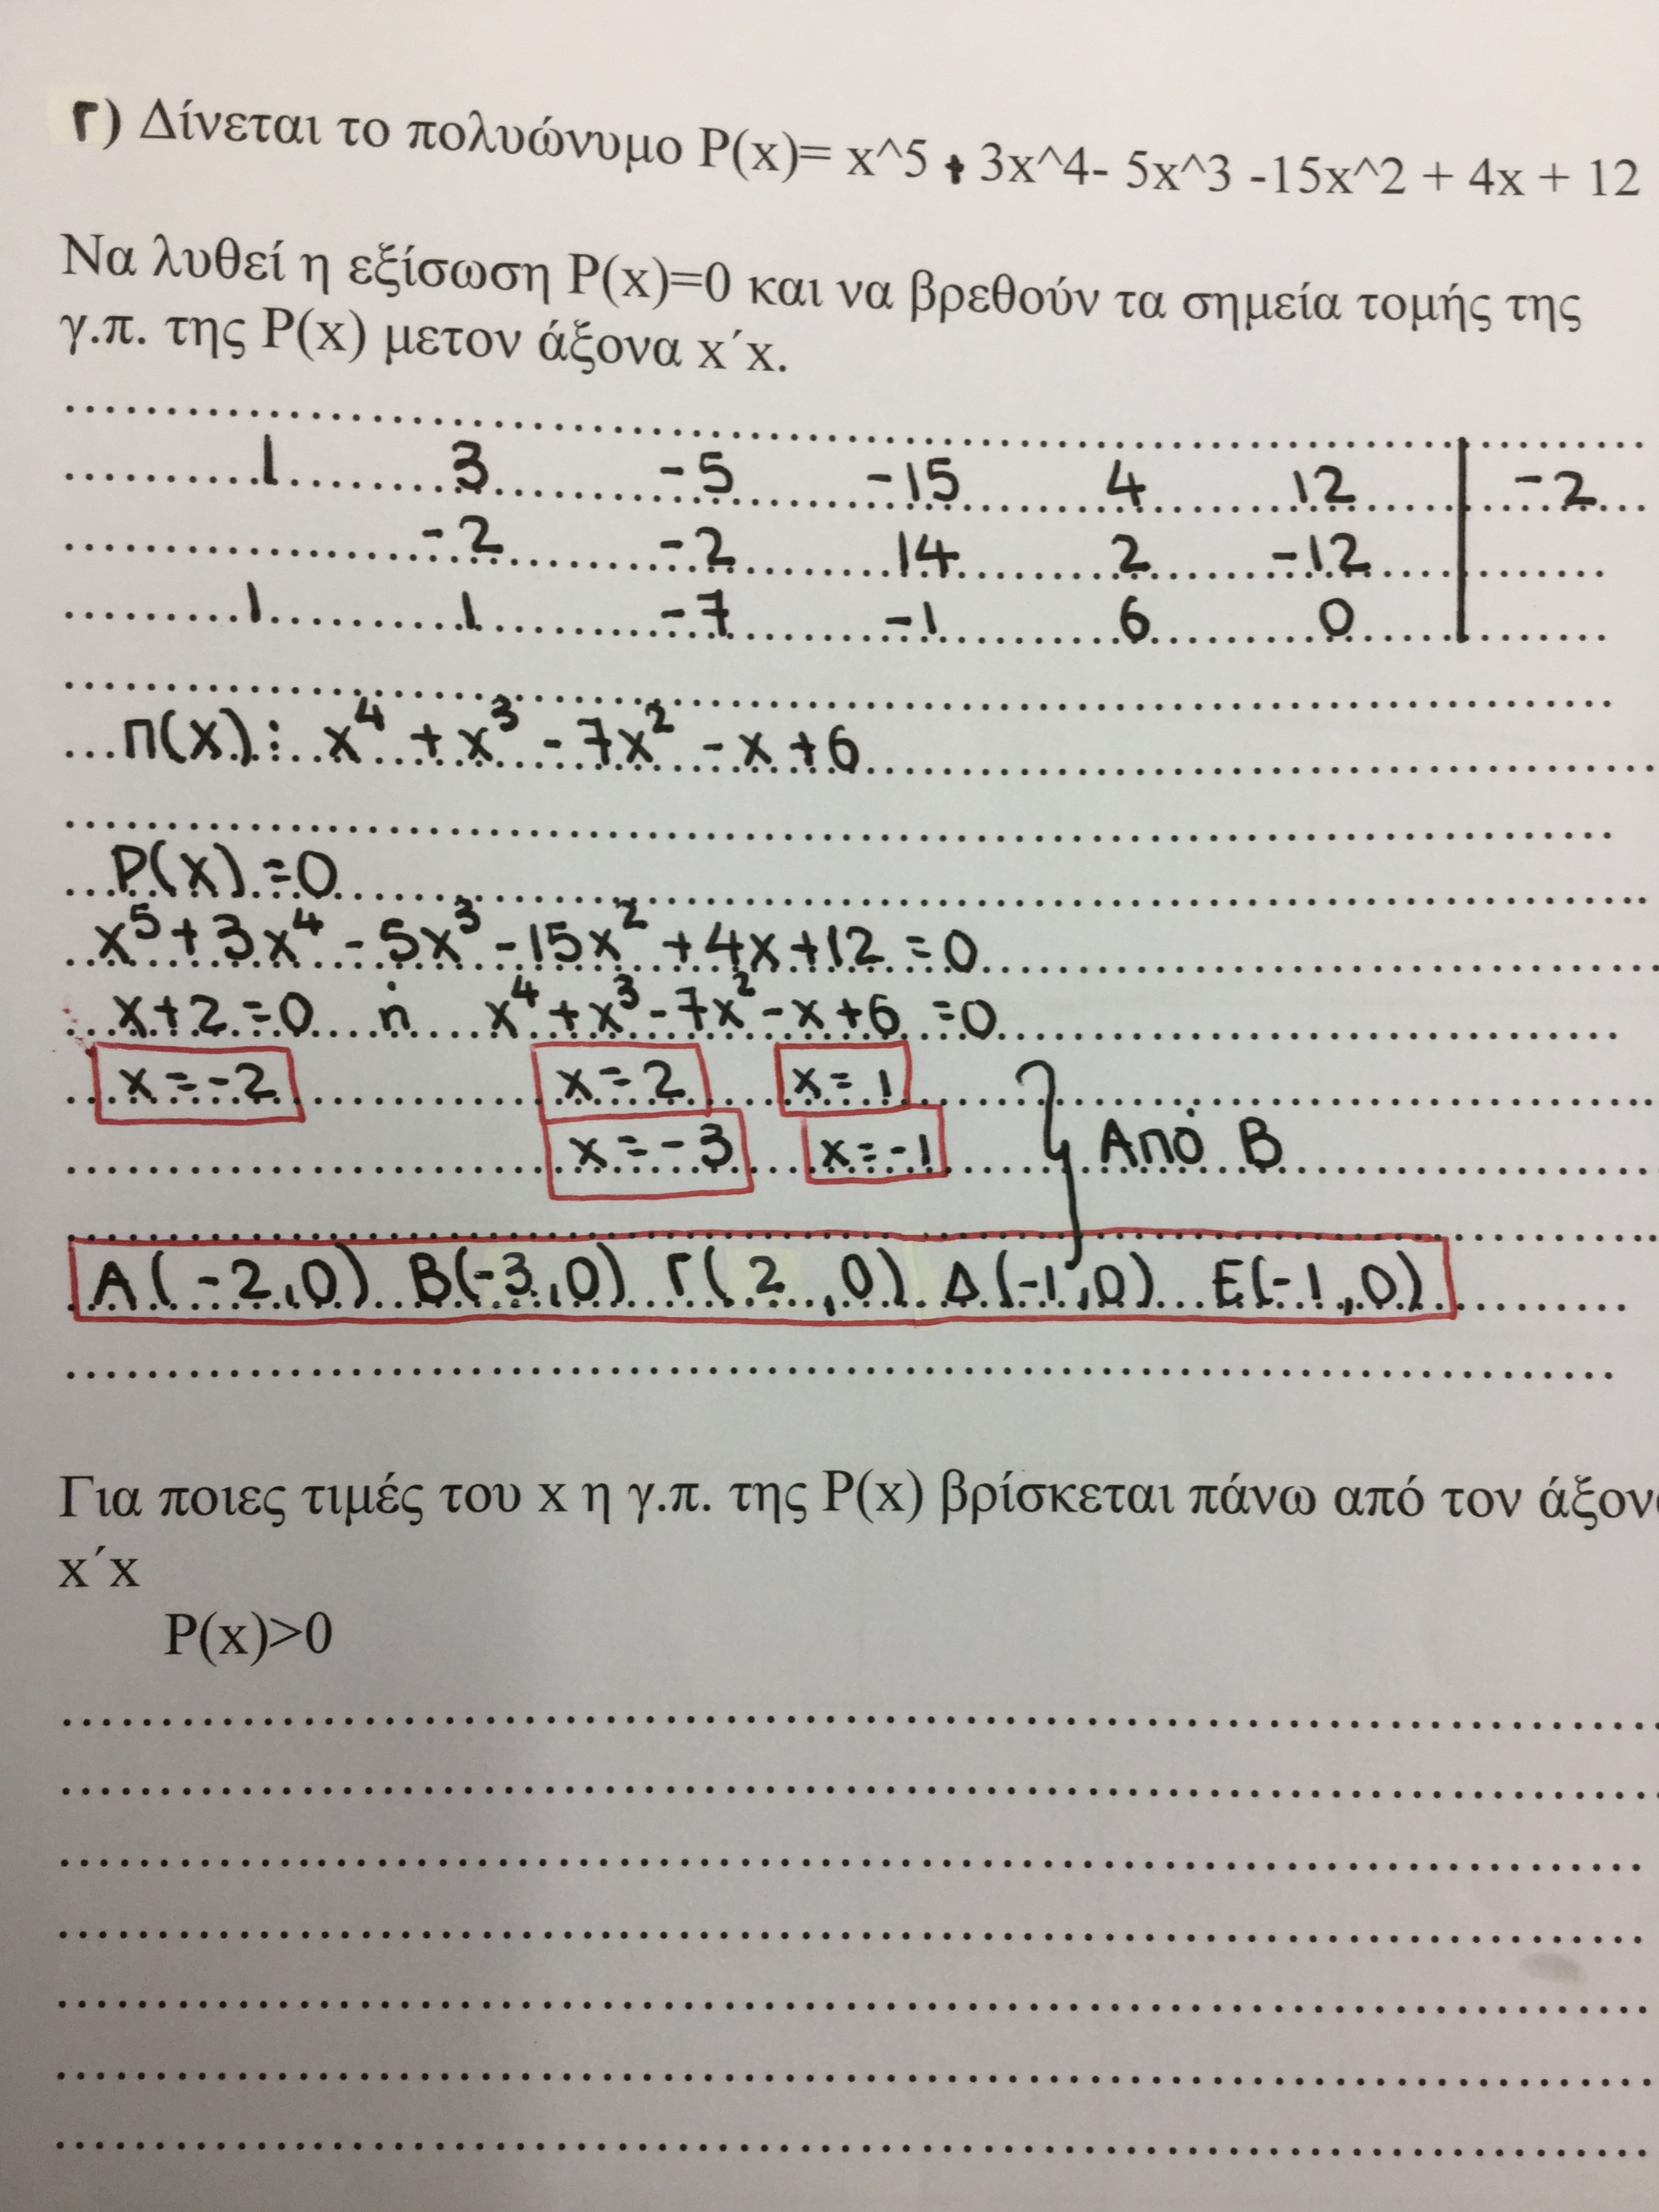 Γ) Δίνεται το πολυώνυμο P(x)= x^5 + 3x^4- 5x^3 -15x^2 + 4x + 12
Να λυθεί η εξίσωση P(x)=0 και να βρεθούν τα σημεία τομής της
γ.π. της P(x) μετον άξονα x΄x.
1 3 -5 -15 4 12 | -2
-2 -2 14 2 -12
1 1 -7 -1 6 0
Π(x): x⁴ + x³ - 7x² - x + 6
P(x) = 0
x⁵ + 3x⁴ - 5x³ - 15x² + 4x + 12 = 0
x + 2 = 0 ή x⁴ + x³ - 7x² - x + 6 = 0
x = -2 x = 2 x = 1
x = -3 x = -1 Από Β
Α(-2,0) Β(-3,0) Γ(2,0) Δ(-1,0) Ε(-1,0)
Για ποιες τιμές του x η γ.π. της P(x) βρίσκεται πάνω από τον άξον
x΄x
P(x)>0